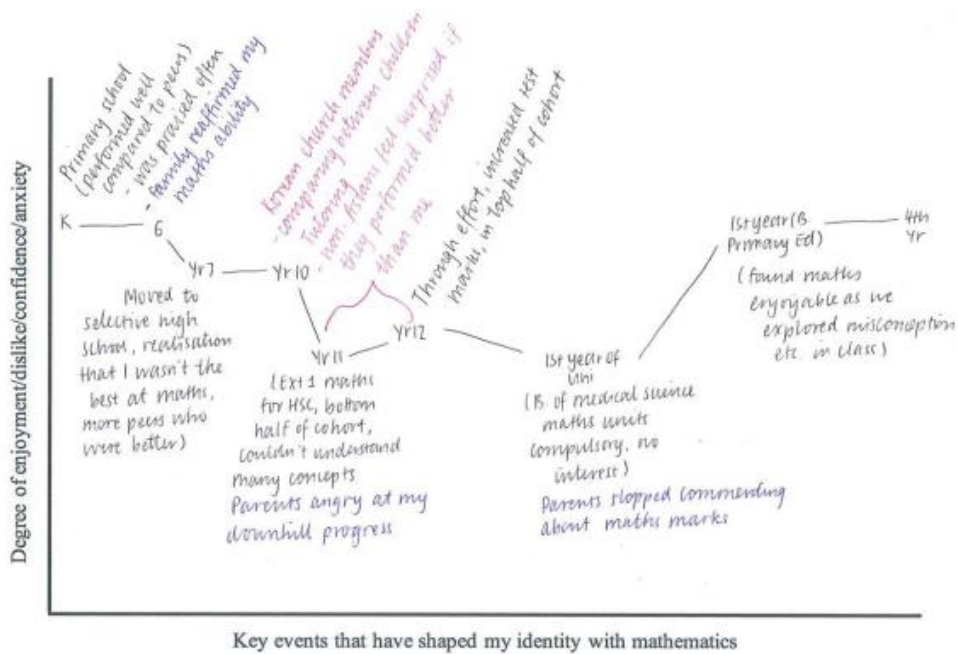 Primary school
(performed well
compared to peers)
- was praised often
- family reaffirmed my
maths ability
Korean church members
- comparing between children
Tutoring
- non-Asians feel surprised if
they performed better
than me
Through effort, increased test
marks, in top half of cohort
K
6
Yr 7
Yr 10
Yr 11
Yr 12
Moved to
selective high
school, realisation
that I wasn't the
best at maths,
more peers who
were better)
(Ext 1 maths
for HSC, bottom
half of cohort,
couldn't understand
many concepts
Parents angry at my
downhill progress
1st year of
Uni
(B. of medical science
maths units
compulsory, no
interest)
Parents stopped commenting
about maths marks
1st year (B.
Primary Ed)
4th
Yr
(found maths
enjoyable as we
explored misconception
etc. in class)
Degree of enjoyment/dislike/confidence/anxiety
Key events that have shaped my identity with mathematics